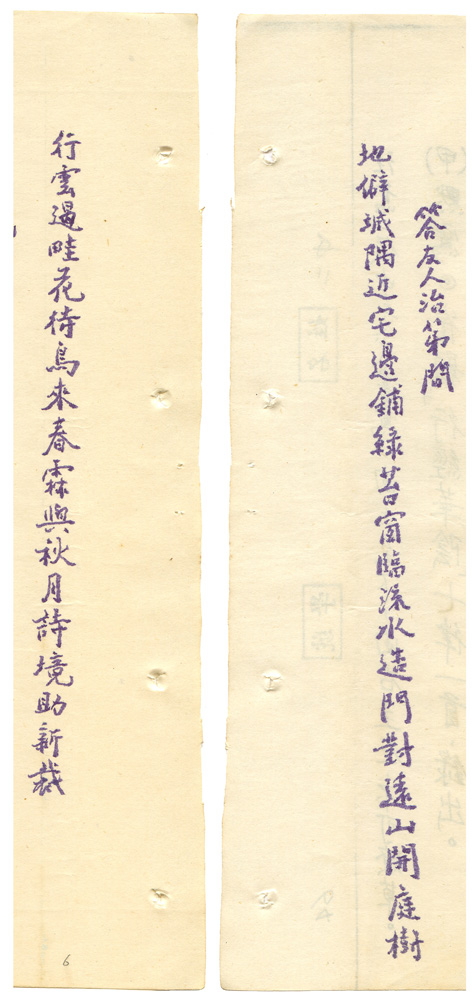 答友人治第問
地僻城隅近宅邊鋪綠苔窗臨流水造門對遠山開庭樹
行雲遏畦花待鳥來春霖與秋月詩境助新裁
6